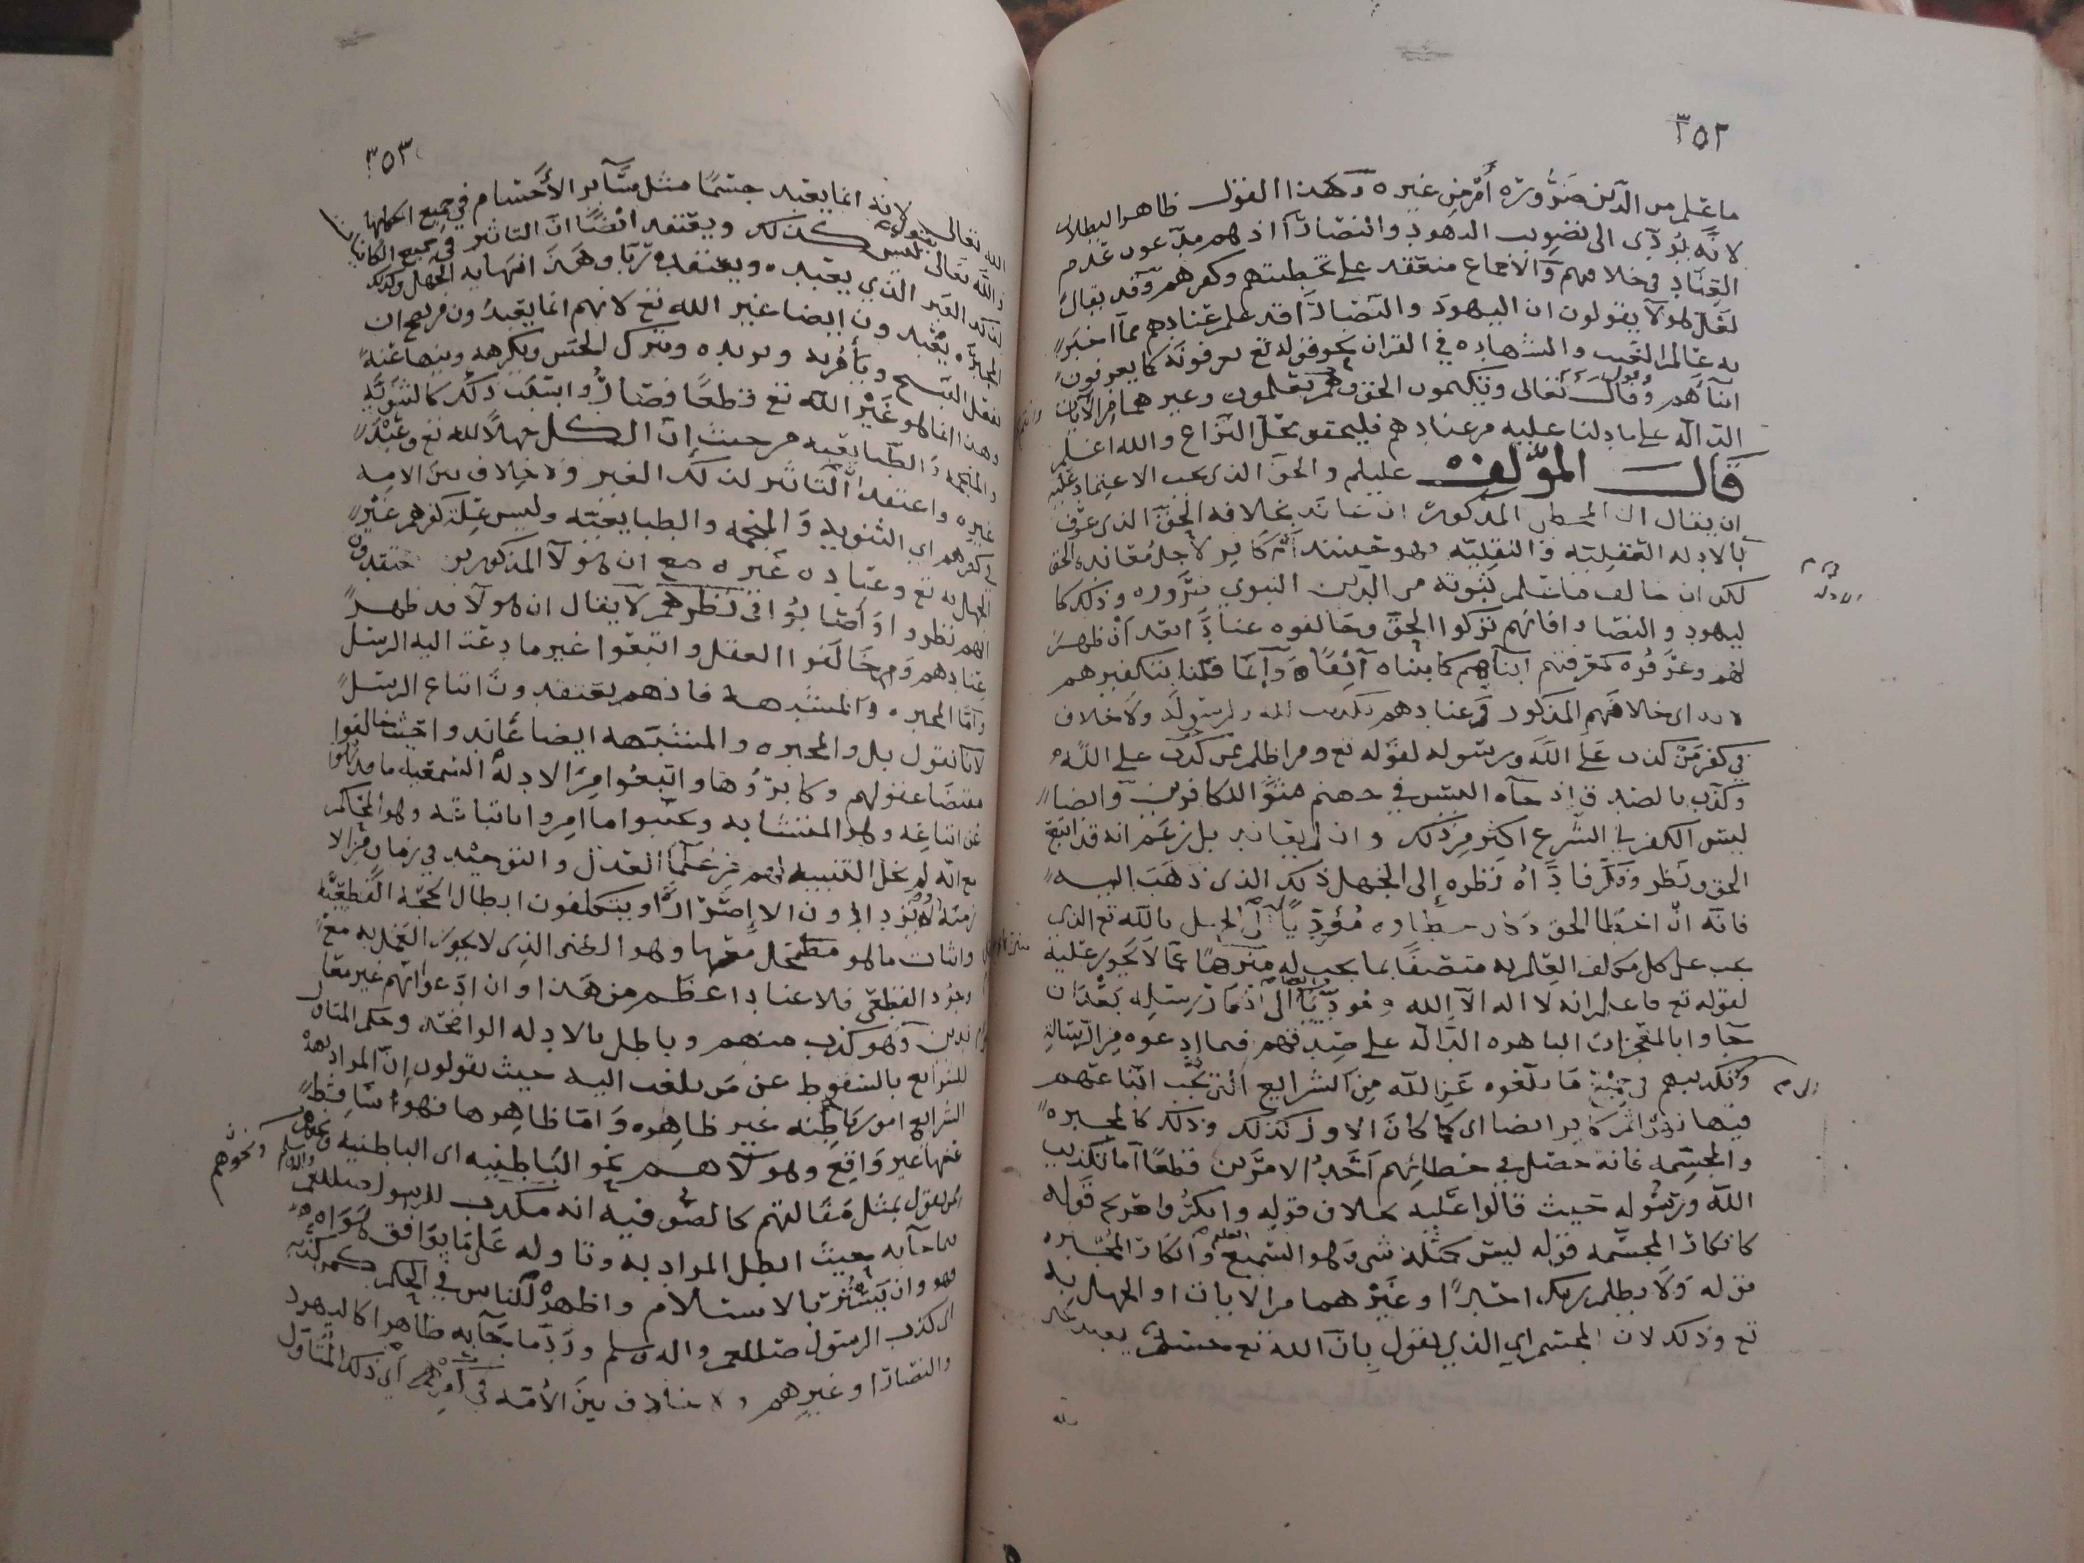 ٣٥٢
ما علم من الدين ضرورة أم من غيره وهذا القول ظاهر البطلان
لأنه يؤدي الى تصويب اليهود والنصارى اذ هم مدعون عدم
العناد في خلافهم والاجماع منعقد على تخطيتهم وكفرهم وقد يقال
لعل هولآ يقولون ان اليهود والنصارى قد علم عنادهم مما اخبر
به عالم الغيب والشهاده في القران نحو قوله تع يعرفونه كما يعرفون
ابنآهم وقوله تعالى وتكتمون الحق وانتم تعلمون وغيرهما من الآيات
الداله على ما دلنا عليه من عنادهم فليحقق محل النزاع والله اعلم
قال المؤلف عليلم والحق الذي يجب الاعتماد عليه
ان يقال ان المخطي المذكور ان عاند بخلافه الحق الذي عرف
بالادله العقليه والنقليه فهو حينئذ آثم كافر لاجل معانده الحق
لكن ان خالف ما علم ثبوته من الدين النبوي ضروره وذلك كا
ليهود والنصارا فانهم تركوا الحق وخالفوه عنادًا بعد ان ظهر
لهم وعرفوه كمعرفتهم ابنآهم كما بيناه آنفًا وانما قلنا بتكفيرهم
لانه اي خلافهم المذكور وعنادهم تكذيب لله ولرسوله ولا خلاف
في كفر من كذب على الله ورسوله لقوله تع ومن اظلم ممن كذب على الله
وكذب بالصدق اذ جآه اليس في جهنم مثوًا للكافرين وايضا
ليس الكفر في الشرع اكثر من ذلك وان لم يعاند بل زعم انه قد اتبع
الحق ونظر وفكر فادّاه نظره إلى الجهل ذلك الذي ذهب اليه
فانه ان اخطا الحق وكان خطاوه مؤديًا الى الجهل بالله تع الذي
يجب على كل مكلف العلم به متصفًا بما يجب له منزهًا عما لا يجوز عليه
لقوله تع فاعلم انه لا اله الا الله ومؤديًا ايضا الى انكار رسله بعد ان
جآوا بالمعجزات الباهره الداله على صدقهم فيما ادعوه من الرسالة
وتكذيبهم في جميع ما بلغوه عن الله من الشرايع التي يجب اتباعهم
فيها فهو آثم كافر ايضا اي كما كان الاول كذلك وذلك كالمجبره
والمجسمه فانه حصل في خطائهم احد الامرين قطعًا اما تكذيب
الله ورسوله حيث قالوا عليه بخلاف قوله وانكروا صريح قوله
كانكار المجسمه قوله ليس كمثله شي وهو السميع العليم وانكار المجبره
قوله ولا يظلم ربك احدًا وغيرهما من الايات او الجهل به
تع وذلك لان المجسم اي الذي يقول بان الله تع جسم يعبد غير
٣٥٣
الله تعالى لانه انما يعبد جسمًا مثل سآير الأجسام في جميع احكامها
والله تعالى ليس كذلك ويعتقد ايضًا ان التاثير في جميع الكاينات
لذلك الغير الذي يعبده ويعتقده ربًا وهذا انتها به الجهل وكذلك
المجبره يعبدون ايضا غير الله تع لانهم انما يعبدون من يصح ان
يفعل القبيح ويأمر به ويريده ويترك الحسن ويكرهه وينها عنه
وهذا انما هو غير الله تع قطعًا فصار وا بسبب ذلك كالثنويه
والمنجمه والطبايعيه من حيث إن الكل جهلا لله تع وعبد
غيره واعتقد ان التاثير لذلك الغير ولا خلاف بين الامه
في كفرهم اي الثنويه والمنجمه والطبايعيه وليس علة كفرهم غير
الجهل به تع وعباده غيره مع ان هولآ المذكورين معتقدون
انهم نظروا واصابوا في نظرهم لا يقال ان هولآ قد ظهر
عنادهم ومخالفوا العقل واتبعوا غير ما دعت اليه الرسل
وامّا المجبره والمشبهه فانهم يعتقدون اتباع الرسل
لانا نقول بل والمجبره والمشبهه ايضا عاند واحيث خالفوا
مقتضا عقولهم وكابروها واتبعوا من الادلة السمعيه ما قد نهوا
عن اتباعه وهو المتشابه وعكسوا ما امروا باتباعه وهو المحاكم
مع انه لم يخل التنبيه لهم من علمآ العدل والتوحيد في زمان من الا
زمنة ولا يزدادون الا إصرارًا ويتكلفون ابطال الحجة القطعيّة
واثبات ما هو مضمحل معها وهو الظن الذي لا يجوز العمل به مع
وجود القطعي فلا عناد اعظم من هذا وان ادعوا انهم غير معا
ندين فهو كذب منهم وباطل بالادله الواضحه وحكم المتاول
للشرايع بالسقوط عن من بلغت اليه حيث يقولون إن المراد بهذه
الشرايع امور باطنه غير ظاهره وامّا ظاهرها فهو سّاقط
عنها غير واقع وهولآهم نحو الباطنيه اي الباطنيه ونحوهم
من يقول بمثل مقالتهم كالصوفيه انه مكذب للرسول صلى الله عليه واله وسلم
بما جآ به حيث ابطل المراد به وتاوله على ما يوافق هواه
فهو وان تستر بالاسلام واظهره للناس في الحكم كمن كذب
اي كذب الرسول صلى الله عليه واله وسلم وردّ ما جآ به ظاهرا كاليهود
والنصارا وغيرهم ولا خلاف بين الأمه في كفرهم أي ذلك المتاول
ونحوهم